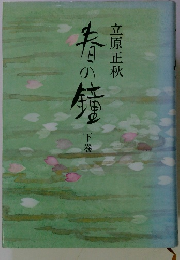 立原正秋
春の鐘
下巻